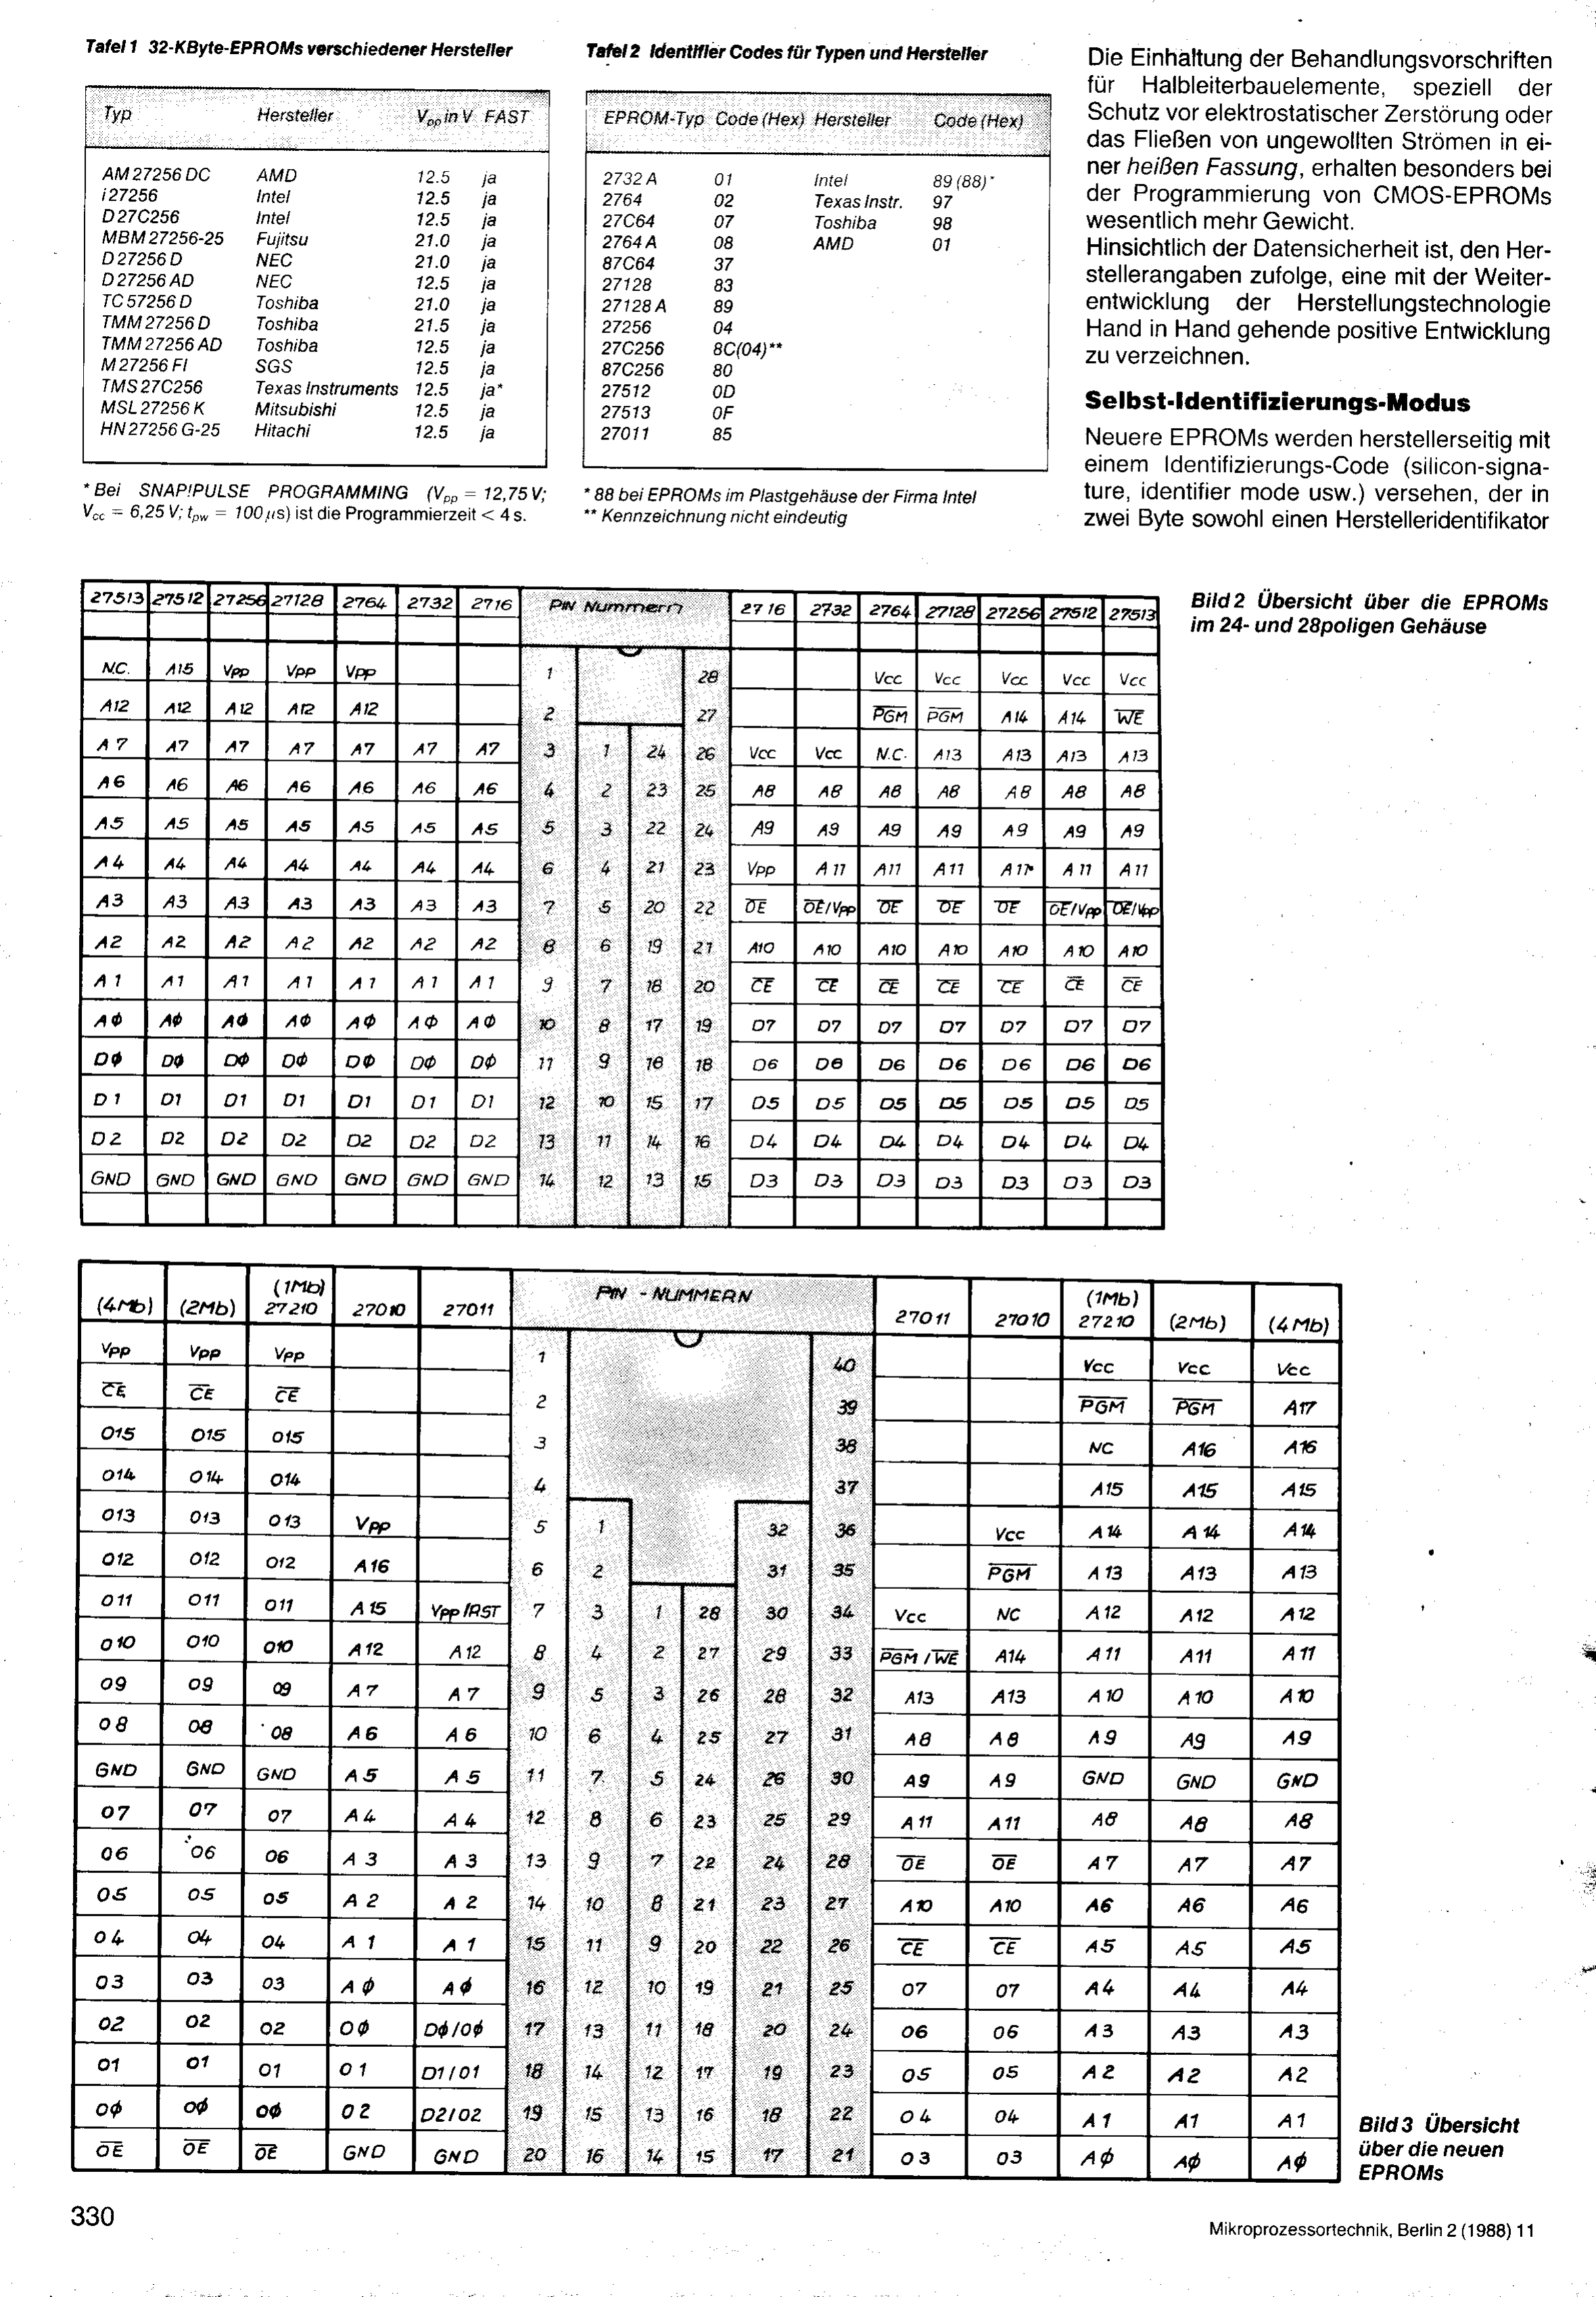 Tafel 1 32-KByte-EPROMs verschiedener Hersteller
Typ Hersteller Vpp in V FAST
AM 27256 DC AMD 12.5 ja
i 27256 Intel 12.5 ja
D 27C256 Intel 12.5 ja
MBM 27256-25 Fujitsu 21.0 ja
D 27256 D NEC 21.0 ja
D 27256 AD NEC 12.5 ja
TC 57256 D Toshiba 21.0 ja
TMM 27256 D Toshiba 21.5 ja
TMM 27256 AD Toshiba 12.5 ja
M 27256 FI SGS 12.5 ja
TMS 27C256 Texas Instruments 12.5 ja*
MSL 27256 K Mitsubishi 12.5 ja
HN 27256 G-25 Hitachi 12.5 ja
* Bei SNAP!PULSE PROGRAMMING (Vpp = 12,75 V;
Vcc = 6,25 V; tpw = 100 µs) ist die Programmierzeit < 4 s.
Tafel 2 Identifier Codes für Typen und Hersteller
EPROM-Typ Code (Hex) Hersteller Code (Hex)
2732 A 01 Intel 89 (88)*
2764 02 Texas Instr. 97
27C64 07 Toshiba 98
2764 A 08 AMD 01
87C64 37
27128 83
27128 A 89
27256 04
27C256 8C(04)**
87C256 80
27512 0D
27513 0F
27011 85
* 88 bei EPROMs im Plastgehäuse der Firma Intel
** Kennzeichnung nicht eindeutig
Die Einhaltung der Behandlungsvorschriften
für Halbleiterbauelemente, speziell der
Schutz vor elektrostatischer Zerstörung oder
das Fließen von ungewollten Strömen in ei-
ner heißen Fassung, erhalten besonders bei
der Programmierung von CMOS-EPROMs
wesentlich mehr Gewicht.
Hinsichtlich der Datensicherheit ist, den Her-
stellerangaben zufolge, eine mit der Weiter-
entwicklung der Herstellungstechnologie
Hand in Hand gehende positive Entwicklung
zu verzeichnen.
Selbst-Identifizierungs-Modus
Neuere EPROMs werden herstellerseitig mit
einem Identifizierungs-Code (silicon-signa-
ture, identifier mode usw.) versehen, der in
zwei Byte sowohl einen Herstelleridentifikator
27513 27512 27256 27128 2764 2732 2716 PIN Nummern 2716 2732 2764 27128 27256 27512 27513
N.C. A15 Vpp Vpp Vpp 1 28 Vcc Vcc Vcc Vcc Vcc
A12 A12 A12 A12 A12 2 27 P̅G̅M̅ P̅G̅M̅ A14 A14 W̅E̅
A7 A7 A7 A7 A7 A7 A7 3 1 24 26 Vcc Vcc N.C. A13 A13 A13 A13
A6 A6 A6 A6 A6 A6 A6 4 2 23 25 A8 A8 A8 A8 A8 A8 A8
A5 A5 A5 A5 A5 A5 A5 5 3 22 24 A9 A9 A9 A9 A9 A9 A9
A4 A4 A4 A4 A4 A4 A4 6 4 21 23 Vpp A11 A11 A11 A11 A11 A11
A3 A3 A3 A3 A3 A3 A3 7 5 20 22 O̅E̅ O̅E̅/Vpp O̅E̅ O̅E̅ O̅E̅ O̅E̅/Vpp O̅E̅/Vpp
A2 A2 A2 A2 A2 A2 A2 8 6 19 21 A10 A10 A10 A10 A10 A10 A10
A1 A1 A1 A1 A1 A1 A1 9 7 18 20 C̅E̅ C̅E̅ C̅E̅ C̅E̅ C̅E̅ C̅E̅ C̅E̅
AΦ AΦ AΦ AΦ AΦ AΦ AΦ 10 8 17 19 D7 D7 D7 D7 D7 D7 D7
DΦ DΦ DΦ DΦ DΦ DΦ DΦ 11 9 16 18 D6 D6 D6 D6 D6 D6 D6
D1 D1 D1 D1 D1 D1 D1 12 10 15 17 D5 D5 D5 D5 D5 D5 D5
D2 D2 D2 D2 D2 D2 D2 13 11 14 16 D4 D4 D4 D4 D4 D4 D4
GND GND GND GND GND GND GND 14 12 13 15 D3 D3 D3 D3 D3 D3 D3
Bild 2 Übersicht über die EPROMs
im 24- und 28poligen Gehäuse
(4Mb) (2Mb) (1Mb) 27210 27010 27011 PIN - NUMMERN 27011 27010 (1Mb) 27210 (2Mb) (4Mb)
Vpp Vpp Vpp 1 40 Vcc Vcc Vcc
C̅E̅ C̅E̅ C̅E̅ 2 39 P̅G̅M̅ P̅G̅M̅ A17
O15 O15 O15 3 38 NC A16 A16
O14 O14 O14 4 37 A15 A15 A15
O13 O13 O13 Vpp 5 1 32 36 Vcc A14 A14 A14
O12 O12 O12 A16 6 2 31 35 P̅G̅M̅ A13 A13 A13
O11 O11 O11 A15 Vpp/RST 7 3 1 28 30 34 Vcc NC A12 A12 A12
O10 O10 O10 A12 A12 8 4 2 27 29 33 P̅G̅M̅/W̅E̅ A14 A11 A11 A11
O9 O9 O9 A7 A7 9 5 3 26 28 32 A13 A13 A10 A10 A10
O8 O8 O8 A6 A6 10 6 4 25 27 31 A8 A8 A9 A9 A9
GND GND GND A5 A5 11 7 5 24 26 30 A9 A9 GND GND GND
O7 O7 O7 A4 A4 12 8 6 23 25 29 A11 A11 A8 A8 A8
O6 O6 O6 A3 A3 13 9 7 22 24 28 O̅E̅ O̅E̅ A7 A7 A7
O5 O5 O5 A2 A2 14 10 8 21 23 27 A10 A10 A6 A6 A6
O4 O4 O4 A1 A1 15 11 9 20 22 26 C̅E̅ C̅E̅ A5 A5 A5
O3 O3 O3 AΦ AΦ 16 12 10 19 21 25 O7 O7 A4 A4 A4
O2 O2 O2 OΦ DΦ/OΦ 17 13 11 18 20 24 O6 O6 A3 A3 A3
O1 O1 O1 O1 D1/O1 18 14 12 17 19 23 O5 O5 A2 A2 A2
OΦ OΦ OΦ O2 D2/O2 19 15 13 16 18 22 O4 O4 A1 A1 A1
O̅E̅ O̅E̅ O̅E̅ GND GND 20 16 14 15 17 21 O3 O3 AΦ AΦ AΦ
Bild 3 Übersicht
über die neuen
EPROMs
330
Mikroprozessortechnik, Berlin 2 (1988) 11